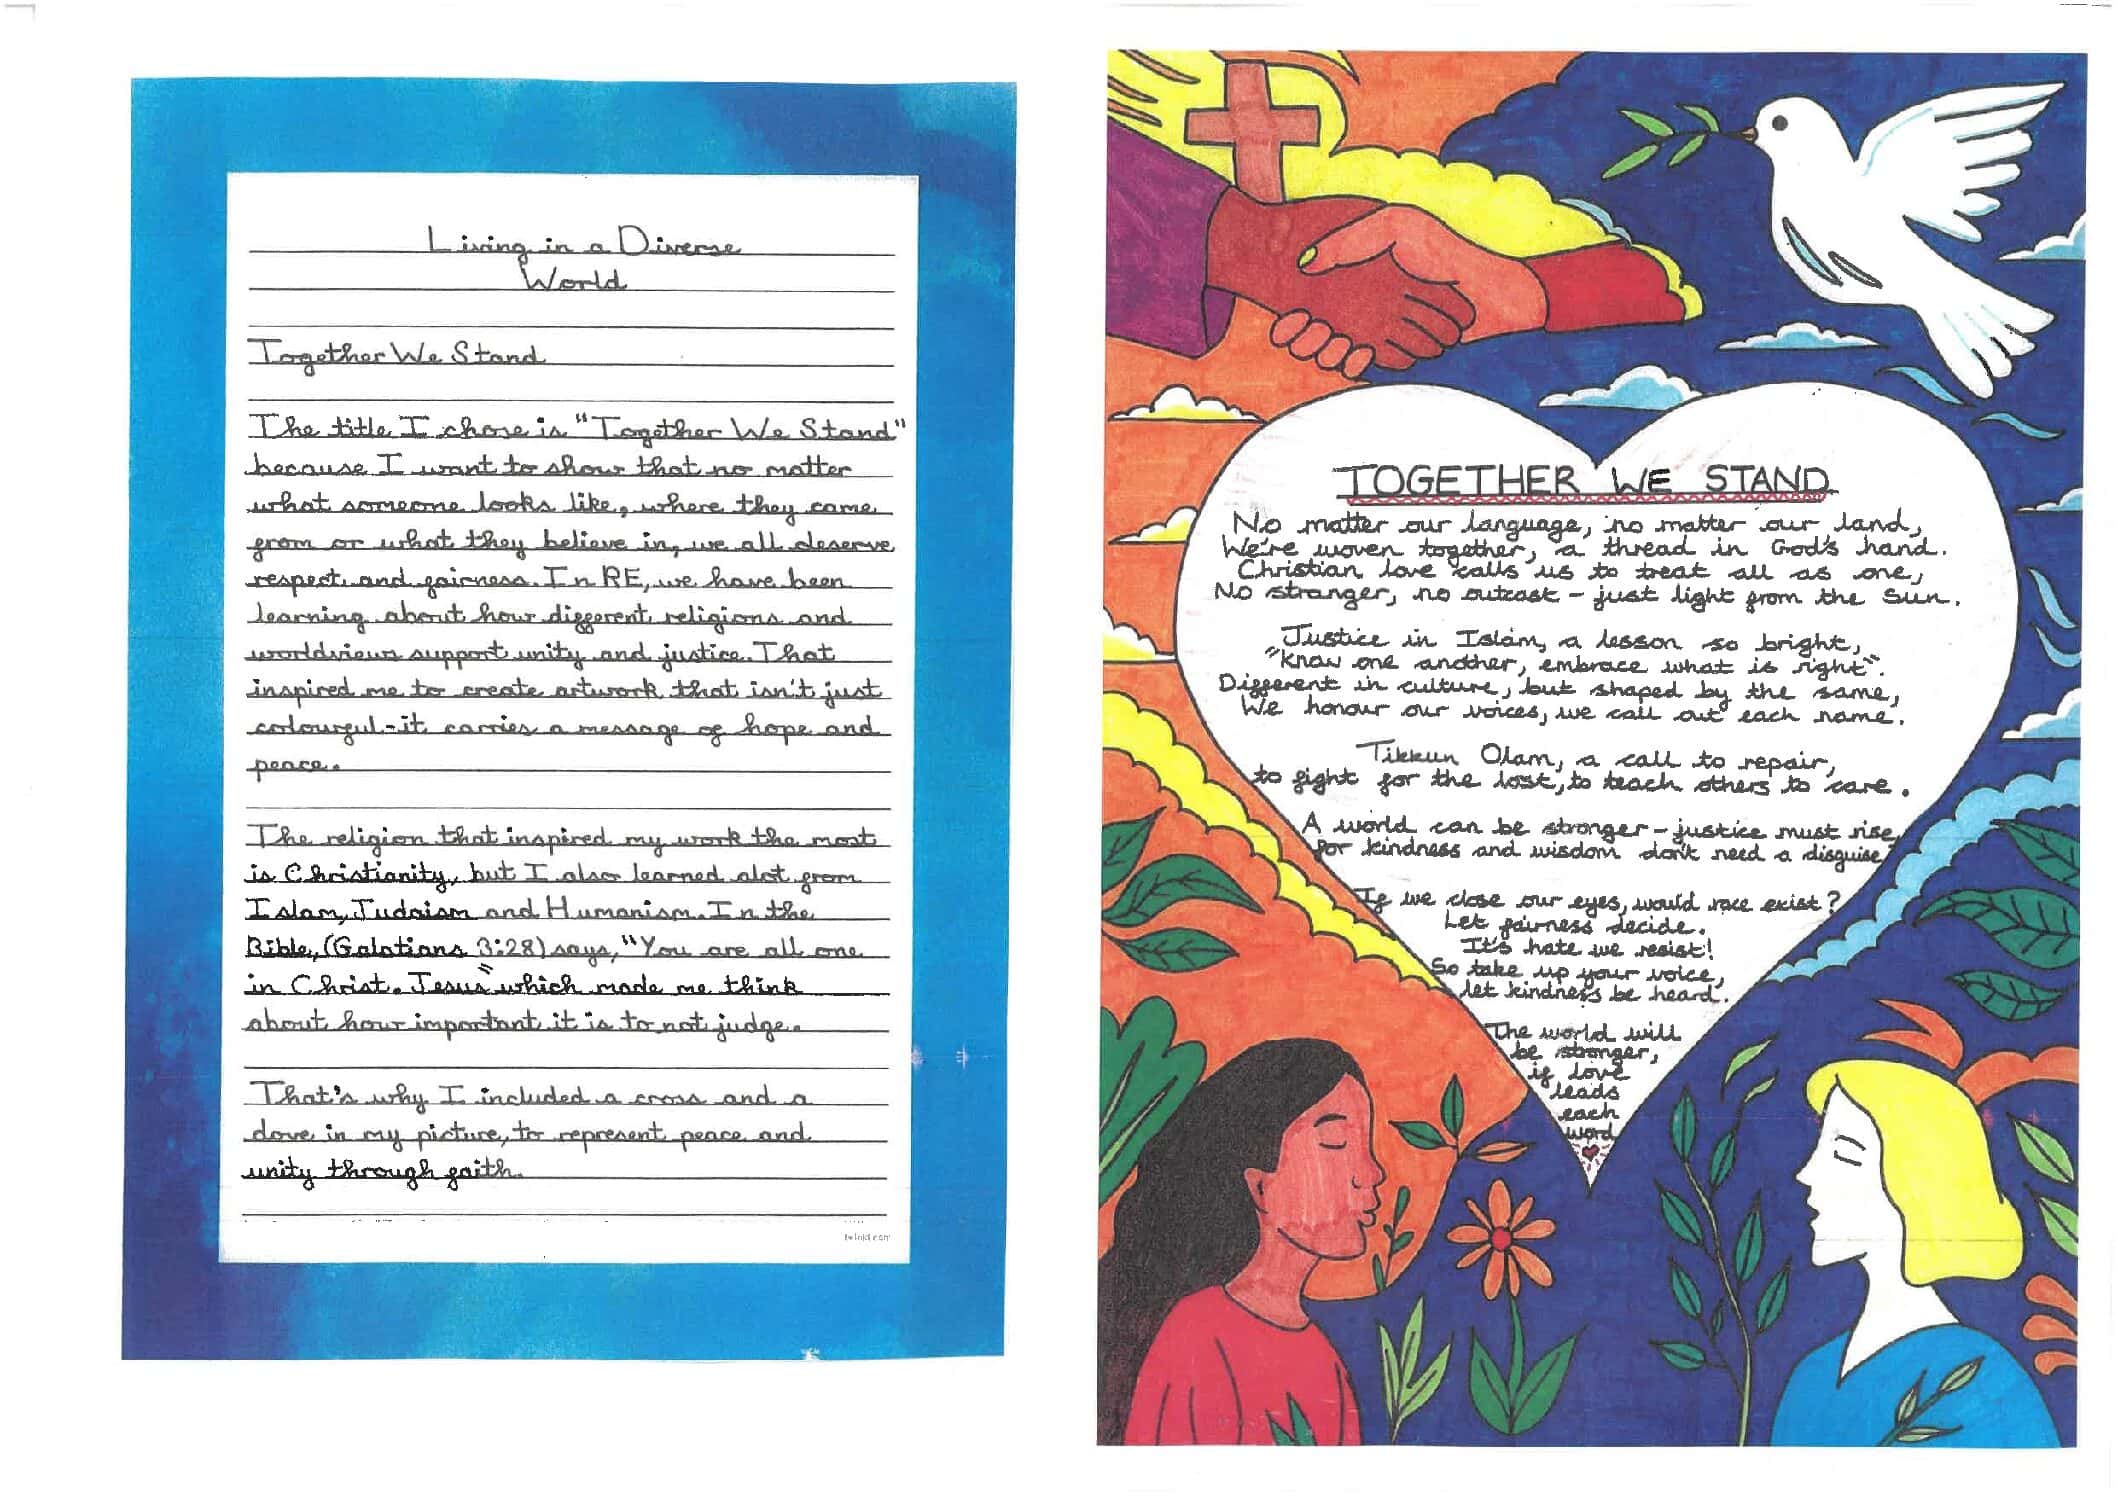 Living in a Diverse
World
Together We Stand
The title I chose is "Together We Stand"
because I want to show that no matter
what someone looks like, where they came
from or what they believe in, we all deserve
respect and fairness. In RE, we have been
learning about how different religions and
worldviews support unity and justice. That
inspired me to create artwork that isn't just
colourful-it carries a message of hope and
peace.
The religion that inspired my work the most
is Christianity, but I also learned alot from
Islam, Judaism and Humanism. In the
Bible, (Galatians 3:28) says, "You are all one
in Christ. Jesus" which made me think
about how important it is to not judge.
That's why I included a cross and a
dove in my picture, to represent peace and
unity through faith.
twinkl.com
TOGETHER WE STAND
No matter our language, no matter our land,
We're woven together, a thread in God's hand.
Christian love calls us to treat all as one,
No stranger, no outcast - just light from the Sun.
Justice in Islam, a lesson so bright,
"Know one another, embrace what is right".
Different in culture, but shaped by the same,
We honour our voices, we call out each name.
Tikkun Olam, a call to repair,
to fight for the lost, to teach others to care.
A world can be stronger - justice must rise,
For kindness and wisdom don't need a disguise.
If we close our eyes, would race exist?
Let fairness decide.
It's hate we resist!
So take up your voice,
let kindness be heard.
The world will
be stronger,
if love
leads
each
word